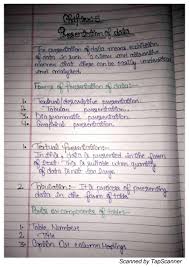 Chapter-5
Presentation of data
The presentation of data means exhibition
of data in such a clear and attractive
manner that these can be easily understood
and analysed.
Forms of presentation of data:-
1. Textual/Descriptive presentation
2. Tabular presentation
3. Diagrammatic presentation
4. Graphical presentation
1. Textual Presentation:-
In this, data is presented in the form
of text. This is suitable when quantity
of data is not too large.
2. Tabulation:- It is a process of presenting
data in the form of table
Parts or components of table:-
1. Table Number
2. Title
3. Caption or column Headings
Scanned by TapScanner